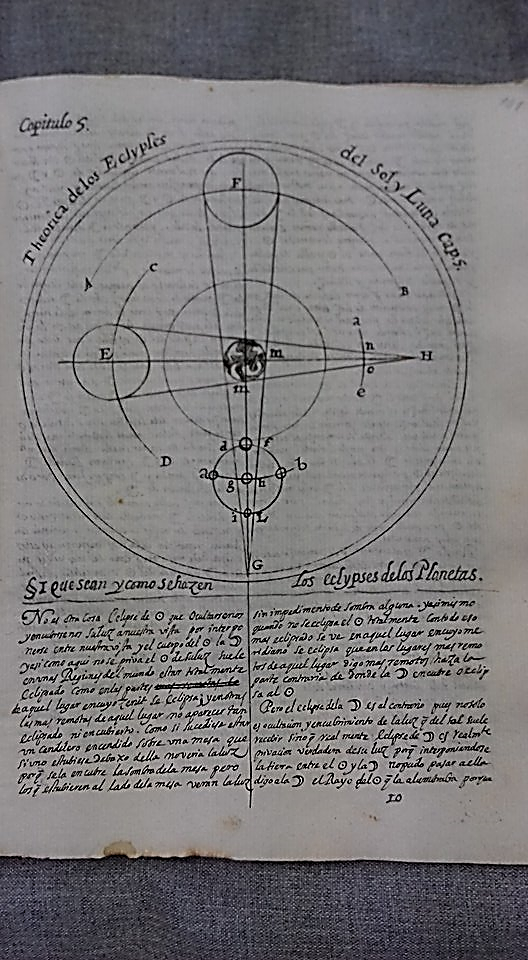 Capitulo 5.
Theorica de los Eclypses del Sol y Luna Cap. 5.
F
A
B
C
a
E
m
n
H
o
m
e
D
d
f
a
b
g
h
i
L
G
§I Que sean y como se hazen los eclypses de los Planetas.
No es otra Cosa Eclipse de ☉ que Ocultarsenos
y encubrirsenos Su luz a nuestra vista por interpo
nerse entre nuestra vista y el cuerpo del ☉ la ☽
y asi como aqui no se priva el ☉ de su luz Suele
en unas Regiones del mundo estar totalmente
Eclipsado Como en las partes
a aquel lugar en cuyo zenit se Eclipsa, y en otras
las mas remotas de aquel lugar no aparecer tan
eclipsado ni encubierto. Como si sucediese estar
un candelero encendido Sobre una mesa que
si uno estubiese Debaxo della no veria la luz
porq̃ se la encubre la Sombra de la mesa pero
los q̃ estubieren al lado de la mesa veran la luz
sin impedimento de Sombra alguna. y asi mismo
quando no se eclipsa el ☉ totalmente Con todo eso
mas eclipsado se ve en aquel lugar en cuyo me
ridiano se eclipsa que en los lugares mas remo
tos de aquel lugar digo mas remotos hazia la
parte contraria de donde la ☽ encubre o eclip
sa al ☉
Pero el eclipse de la ☽ es al contrario pues no solo
es ocultacion y encubrimiento de la luz q̃ del sol suele
recebir sino q̃ real mente Eclypse de ☽ es realmte
privacion verdadera de su luz porq̃ interponiendose
la tierra entre el ☉ y la ☽ no pudo pasar a ella
digo a la ☽ el Rayo del ☉ q̃ la alumbraba porque
10